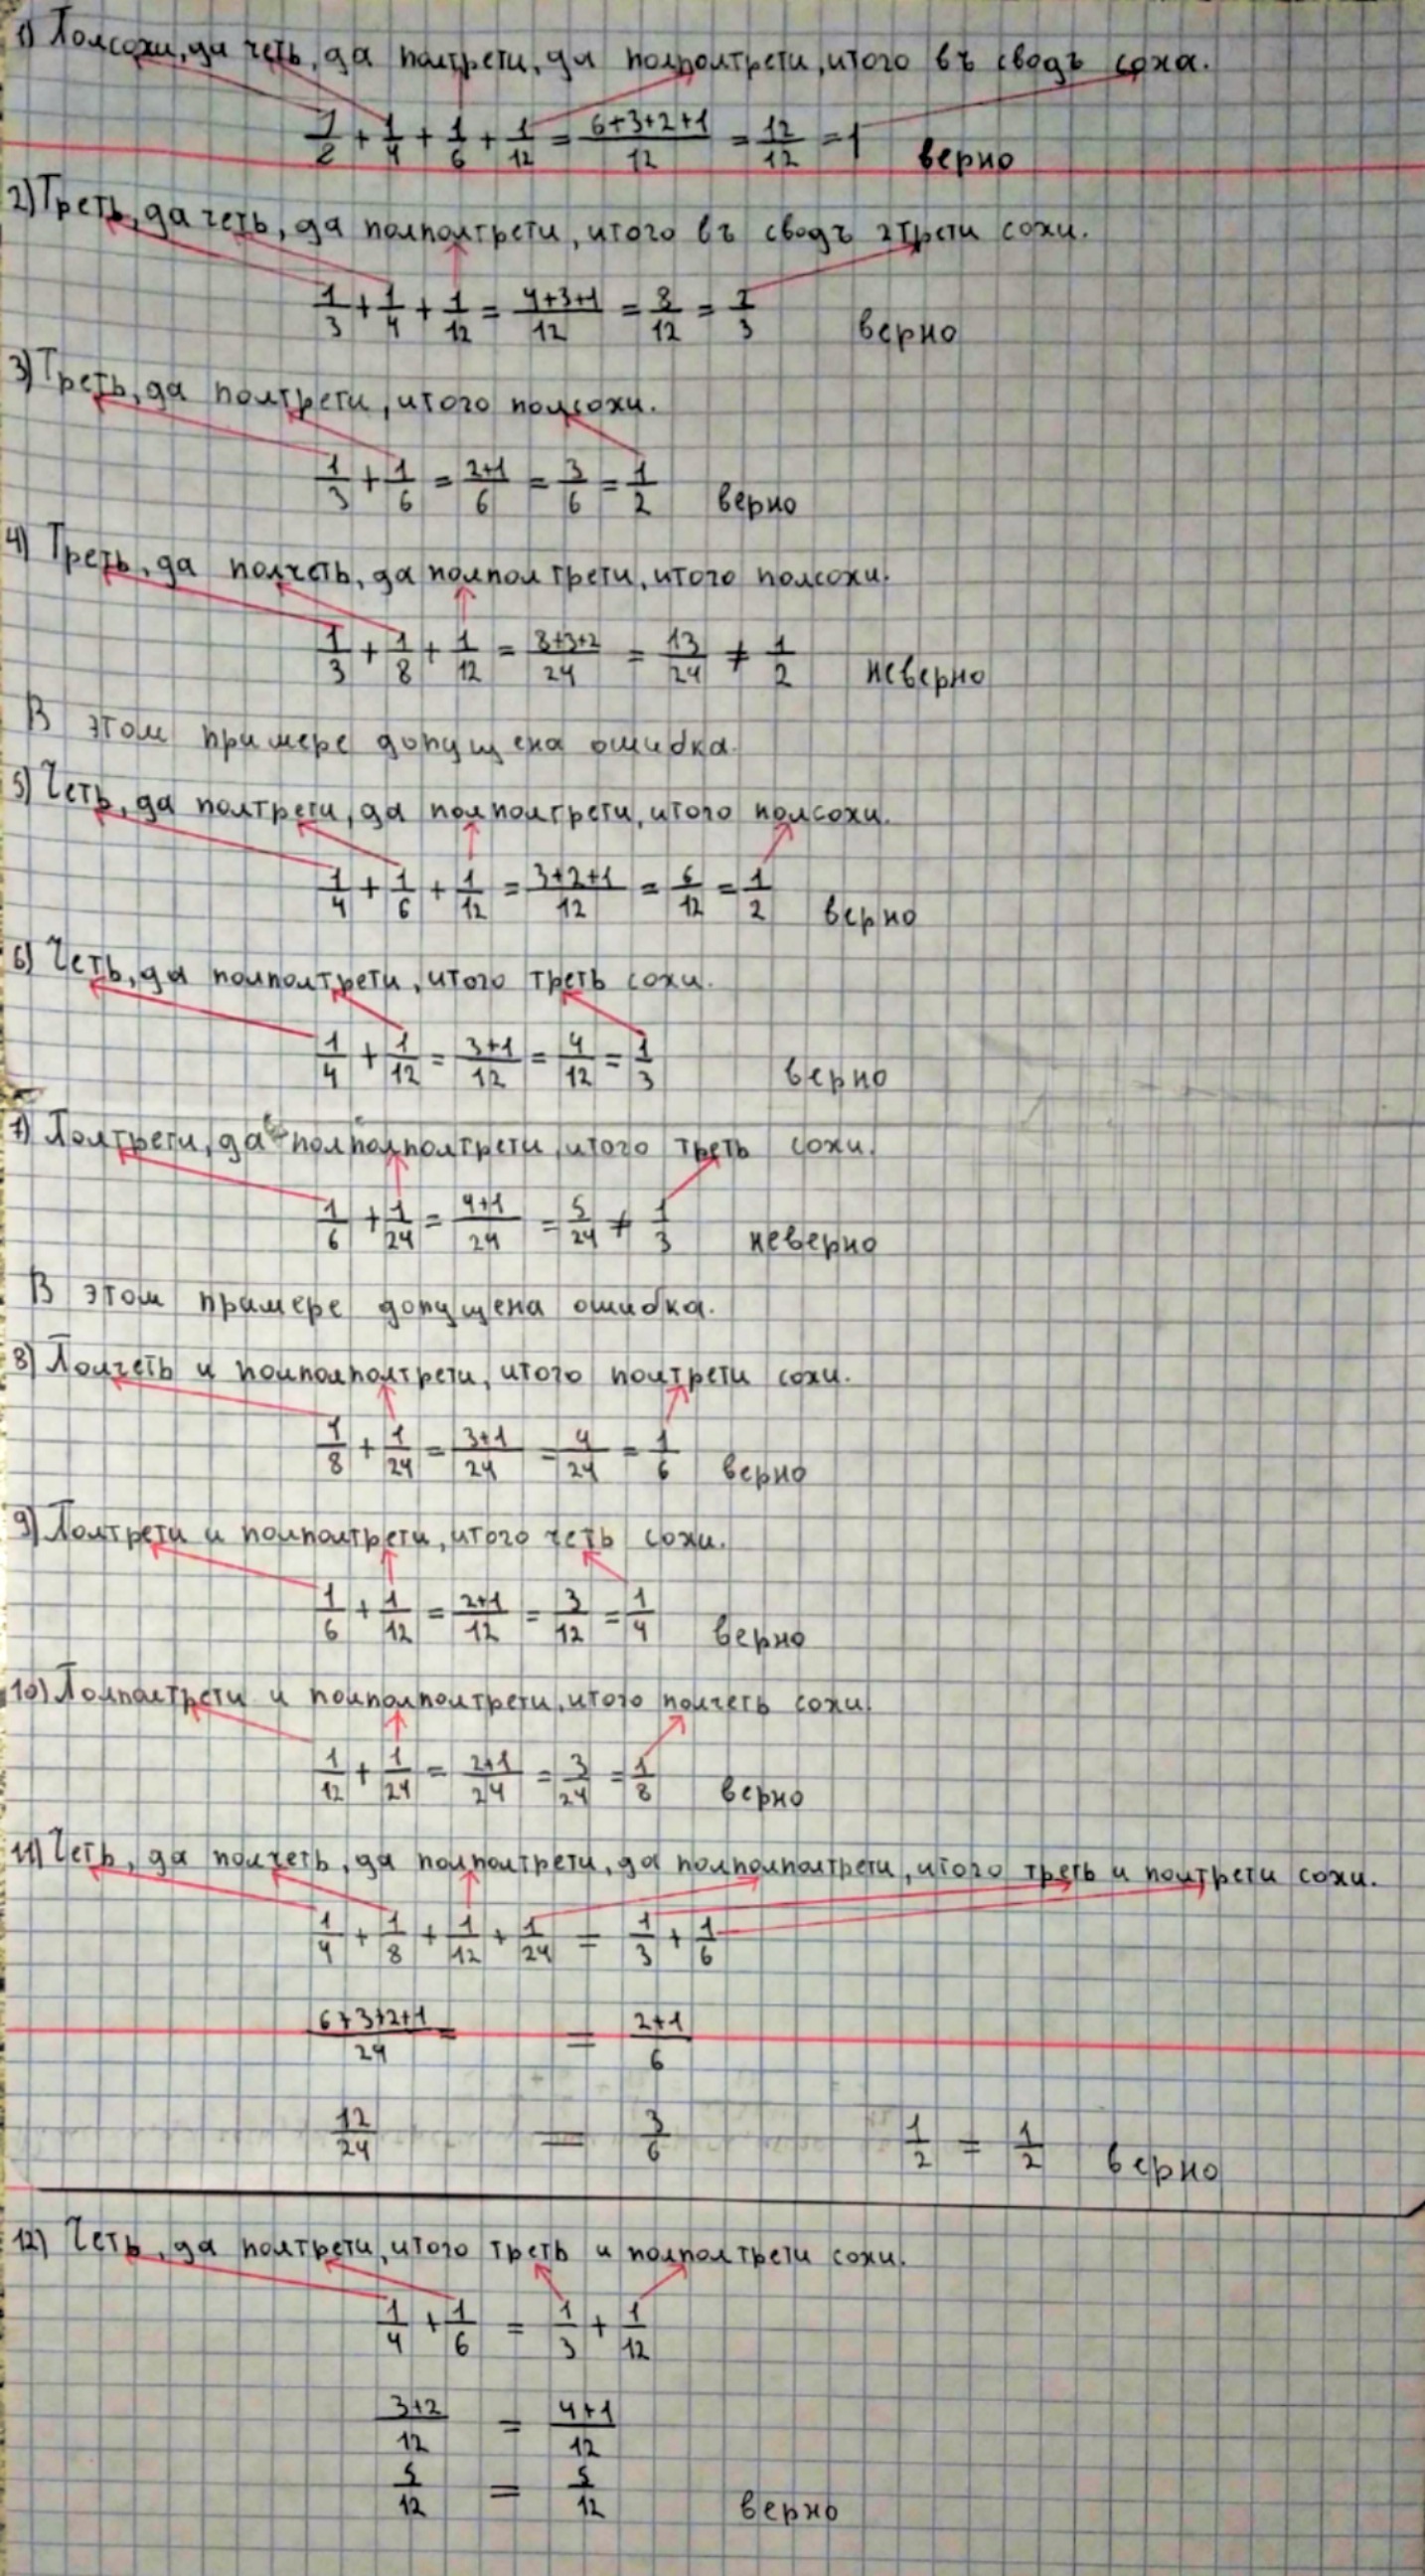 1) Полсохи, да четь, да полтрети, да полполтрети, итого въ сводъ соха.
1/2 + 1/4 + 1/6 + 1/12 = 6+3+2+1/12 = 12/12 = 1 верно
2) Треть, да четь, да полполтрети, итого въ сводъ 2 трети сохи.
1/3 + 1/4 + 1/12 = 4+3+1/12 = 8/12 = 2/3 верно
3) Треть, да полтрети, итого полсохи.
1/3 + 1/6 = 2+1/6 = 3/6 = 1/2 верно
4) Треть, да полчеть, да полполтрети, итого полсохи.
1/3 + 1/8 + 1/12 = 8+3+2/24 = 13/24 ≠ 1/2 неверно
В этом примере допущена ошибка.
5) Четь, да полтрети, да полполтрети, итого полсохи.
1/4 + 1/6 + 1/12 = 3+2+1/12 = 6/12 = 1/2 верно
6) Четь, да полполтрети, итого треть сохи.
1/4 + 1/12 = 3+1/12 = 4/12 = 1/3 верно
7) Полтрети, да полполполтрети, итого треть сохи.
1/6 + 1/24 = 4+1/24 = 5/24 ≠ 1/3 неверно
В этом примере допущена ошибка.
8) Полчеть и полполполтрети, итого полтрети сохи.
1/8 + 1/24 = 3+1/24 = 4/24 = 1/6 верно
9) Полтрети и полполтрети, итого четь сохи.
1/6 + 1/12 = 2+1/12 = 3/12 = 1/4 верно
10) Полполтрети и полполполтрети, итого полчеть сохи.
1/12 + 1/24 = 2+1/24 = 3/24 = 1/8 верно
11) Четь, да полчеть, да полполтрети, да полполполтрети, итого треть и полтрети сохи.
1/4 + 1/8 + 1/12 + 1/24 = 1/3 + 1/6
6+3+2+1/24 = = 2+1/6
12/24 = 3/6 1/2 = 1/2 верно
12) Четь, да полтрети, итого треть и полполтрети сохи.
1/4 + 1/6 = 1/3 + 1/12
3+2/12 = 4+1/12
5/12 = 5/12 верно